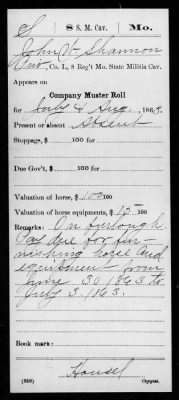 S | 8 S. M. Cav. | Mo.
John W. Shannon
Pvt., Co. L, 8 Reg't Mo. State Militia Cav.
Appears on
Company Muster Roll
for July & Aug, 1863.
Present or absent Absent
Stoppage, $ 100 for
Due Gov't, $ 100 for
Valuation of horse, $ 100
Valuation of horse equipments, $ 15 100
Remarks: On furlough.
Pay due for fur-
nishing horse and
equipment from
June 30 1863 to
July 3. 1863.
Book mark:
Housel
(859) Copyist.